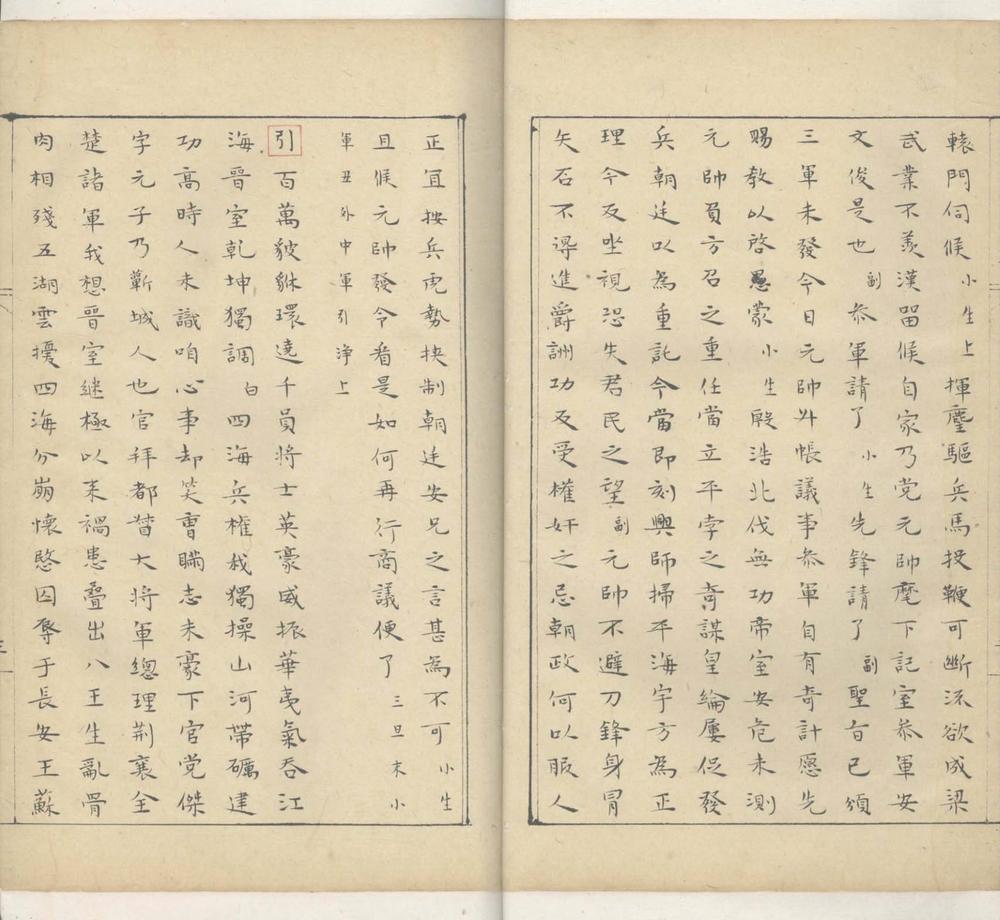 轅門伺候小生上揮麈驅兵馬投鞭可斷流欲成梁
武業不羨漢留候自家乃党元帥麾下記室叅軍安
文俊是也副叅軍請了小生先鋒請了副聖旨已頒
三軍未發今日元帥升帳議事叅軍自有奇計愿先
賜教以啓愚蒙小生殷浩北伐無功帝室安危未測
元帥負方召之重任當立平李之奇謀皇綸屢促發
兵朝廷以為重託今當即刻興師掃平海宇方為正
理今反坐視恐失君民之望副元帥不避刀鋒身冒
矢石不得進爵詶功反受權奸之忌朝政何以服人
正宜按兵虎勢挾制朝廷安兄之言甚為不可小生
且候元帥發令看是如何再行商議便了三旦末小
軍丑外中軍引淨上
引百萬貔貅環遶千員将士英豪威振華夷氣吞江
海晉室乾坤獨調白四海兵權我獨操山河帶礪建
功高時人未識咱心事却笑曹瞞志未豪下官党傑
字元子乃蘄城人也官拜都督大将軍總理荆襄全
楚諸軍我想晉室継極以来禍患疊出八王生亂骨
肉相殘五湖雲擾四海分崩懷愍囚辱于長安王蘇